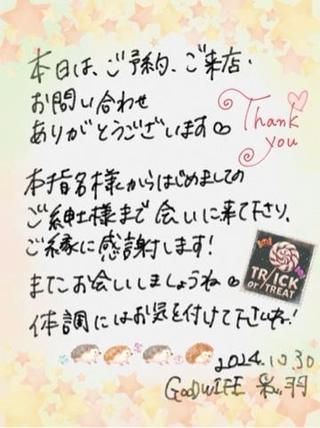 本日は、ご予約、ご来店・
お問い合わせ
ありがとうございます♡
Thank
you
本指名様からはじめましての
ご紳士様まで会いに来て下さり、
ご縁に感謝します!
またお会いしましょうね♡
TRICK
or
TREAT
体調にはお気を付けて下さいね!
2024.10.30
GOODWIFE